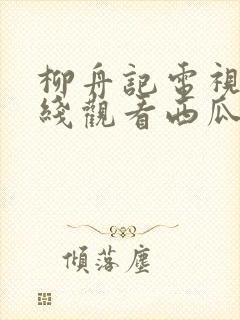 柳舟記電視
綫觀看西瓜
傾落塵